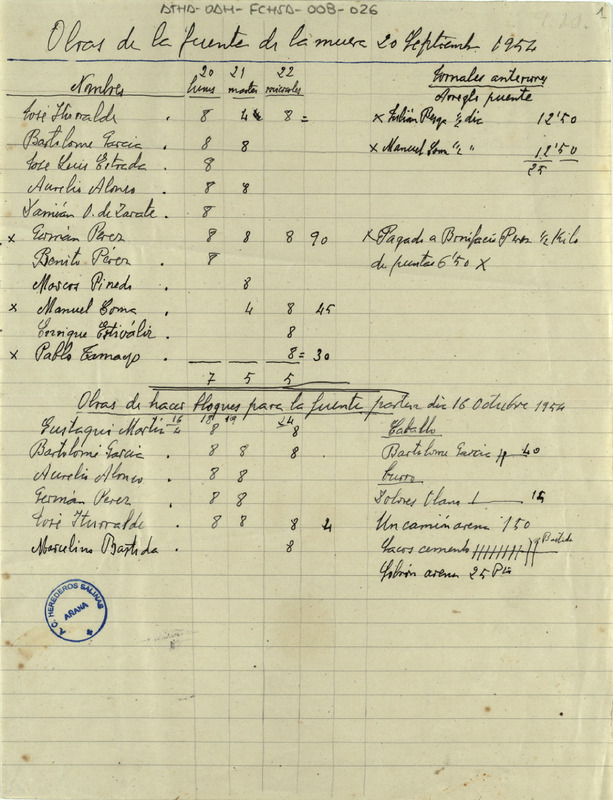 ATHA-DAH-FCHSA-008-026
1
Obras de la fuente de la muera 20 Septiembre 1954
20 21 22
Nombres lunes martes miercoles
José Iturralde . 8 4 8 =
Bartolome Garcia . 8 8
Jose Luis Estrada . 8
Aurelio Alonso . 8 8
Damián O. de Zarate . 8
x Germán Perez . 8 8 8 90
Benito Pérez . 8
Marcos Pinedo . 8
x Manuel Loma . 4 8 45
Enrique Estiváliz . 8
x Pablo Tamayo . 8 = 30
7 5 5
Jornales anteriores
Arreglo puente
x Julián ½ dia 12'50
x Manuel Loma ½ " 12'50
25
x Pagado a Bonifacio Perez ½ Kilo
de puntas 6'50 x
Obras de hacer bloques para la fuente dia 16 Octubre 1954
16 18 19 24
Eustaquio Martin 4 8 8
Bartolomé Garcia . 8 8 8
Aurelio Alonso . 8 8
Germán Perez . 8 8
José Iturralde . 8 8 8 4
Marcelino Bastida . 8
Caballo
Bartolome Garcia 40
burro
Dolores 1 15
Un camión arena 150
Sacos cemento
arena 25 Pts
A. C. HEREDEROS SALINAS
AÑANA